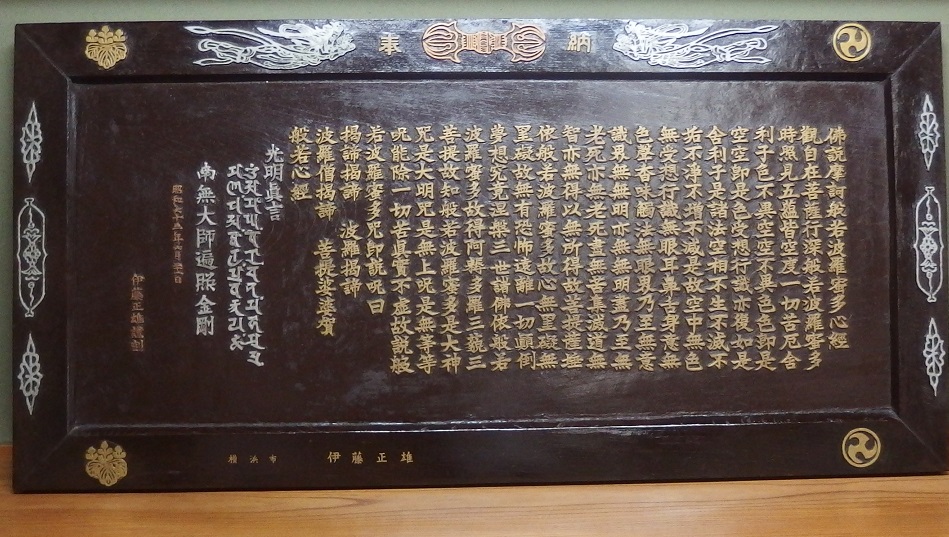 奉納
佛説摩訶般若波羅蜜多心經
觀自在菩薩行深般若波羅蜜多
時照見五蘊皆空度一切苦厄舍
利子色不異空空不異色色即是
空空即是色受想行識亦復如是
舍利子是諸法空相不生不滅不
垢不淨不增不減是故空中無色
無受想行識無眼耳鼻舌身意無
色聲香味觸法無眼界乃至無意
識界無無明亦無無明盡乃至無
老死亦無老死盡無苦集滅道無
智亦無得以無所得故菩提薩埵
依般若波羅蜜多故心無罣礙無
罣礙故無有恐怖遠離一切顛倒
夢想究竟涅槃三世諸佛依般若
波羅蜜多故得阿耨多羅三藐三
菩提故知般若波羅蜜多是大神
咒是大明咒是無上咒是無等等
咒能除一切苦眞實不虚故説般
若波羅蜜多咒即説咒曰
揭諦揭諦 波羅揭諦
波羅僧揭諦 菩提娑婆訶
般若心經
光明眞言
南無大師遍照金剛
昭和
伊藤正雄謹刻
横浜市 伊藤正雄